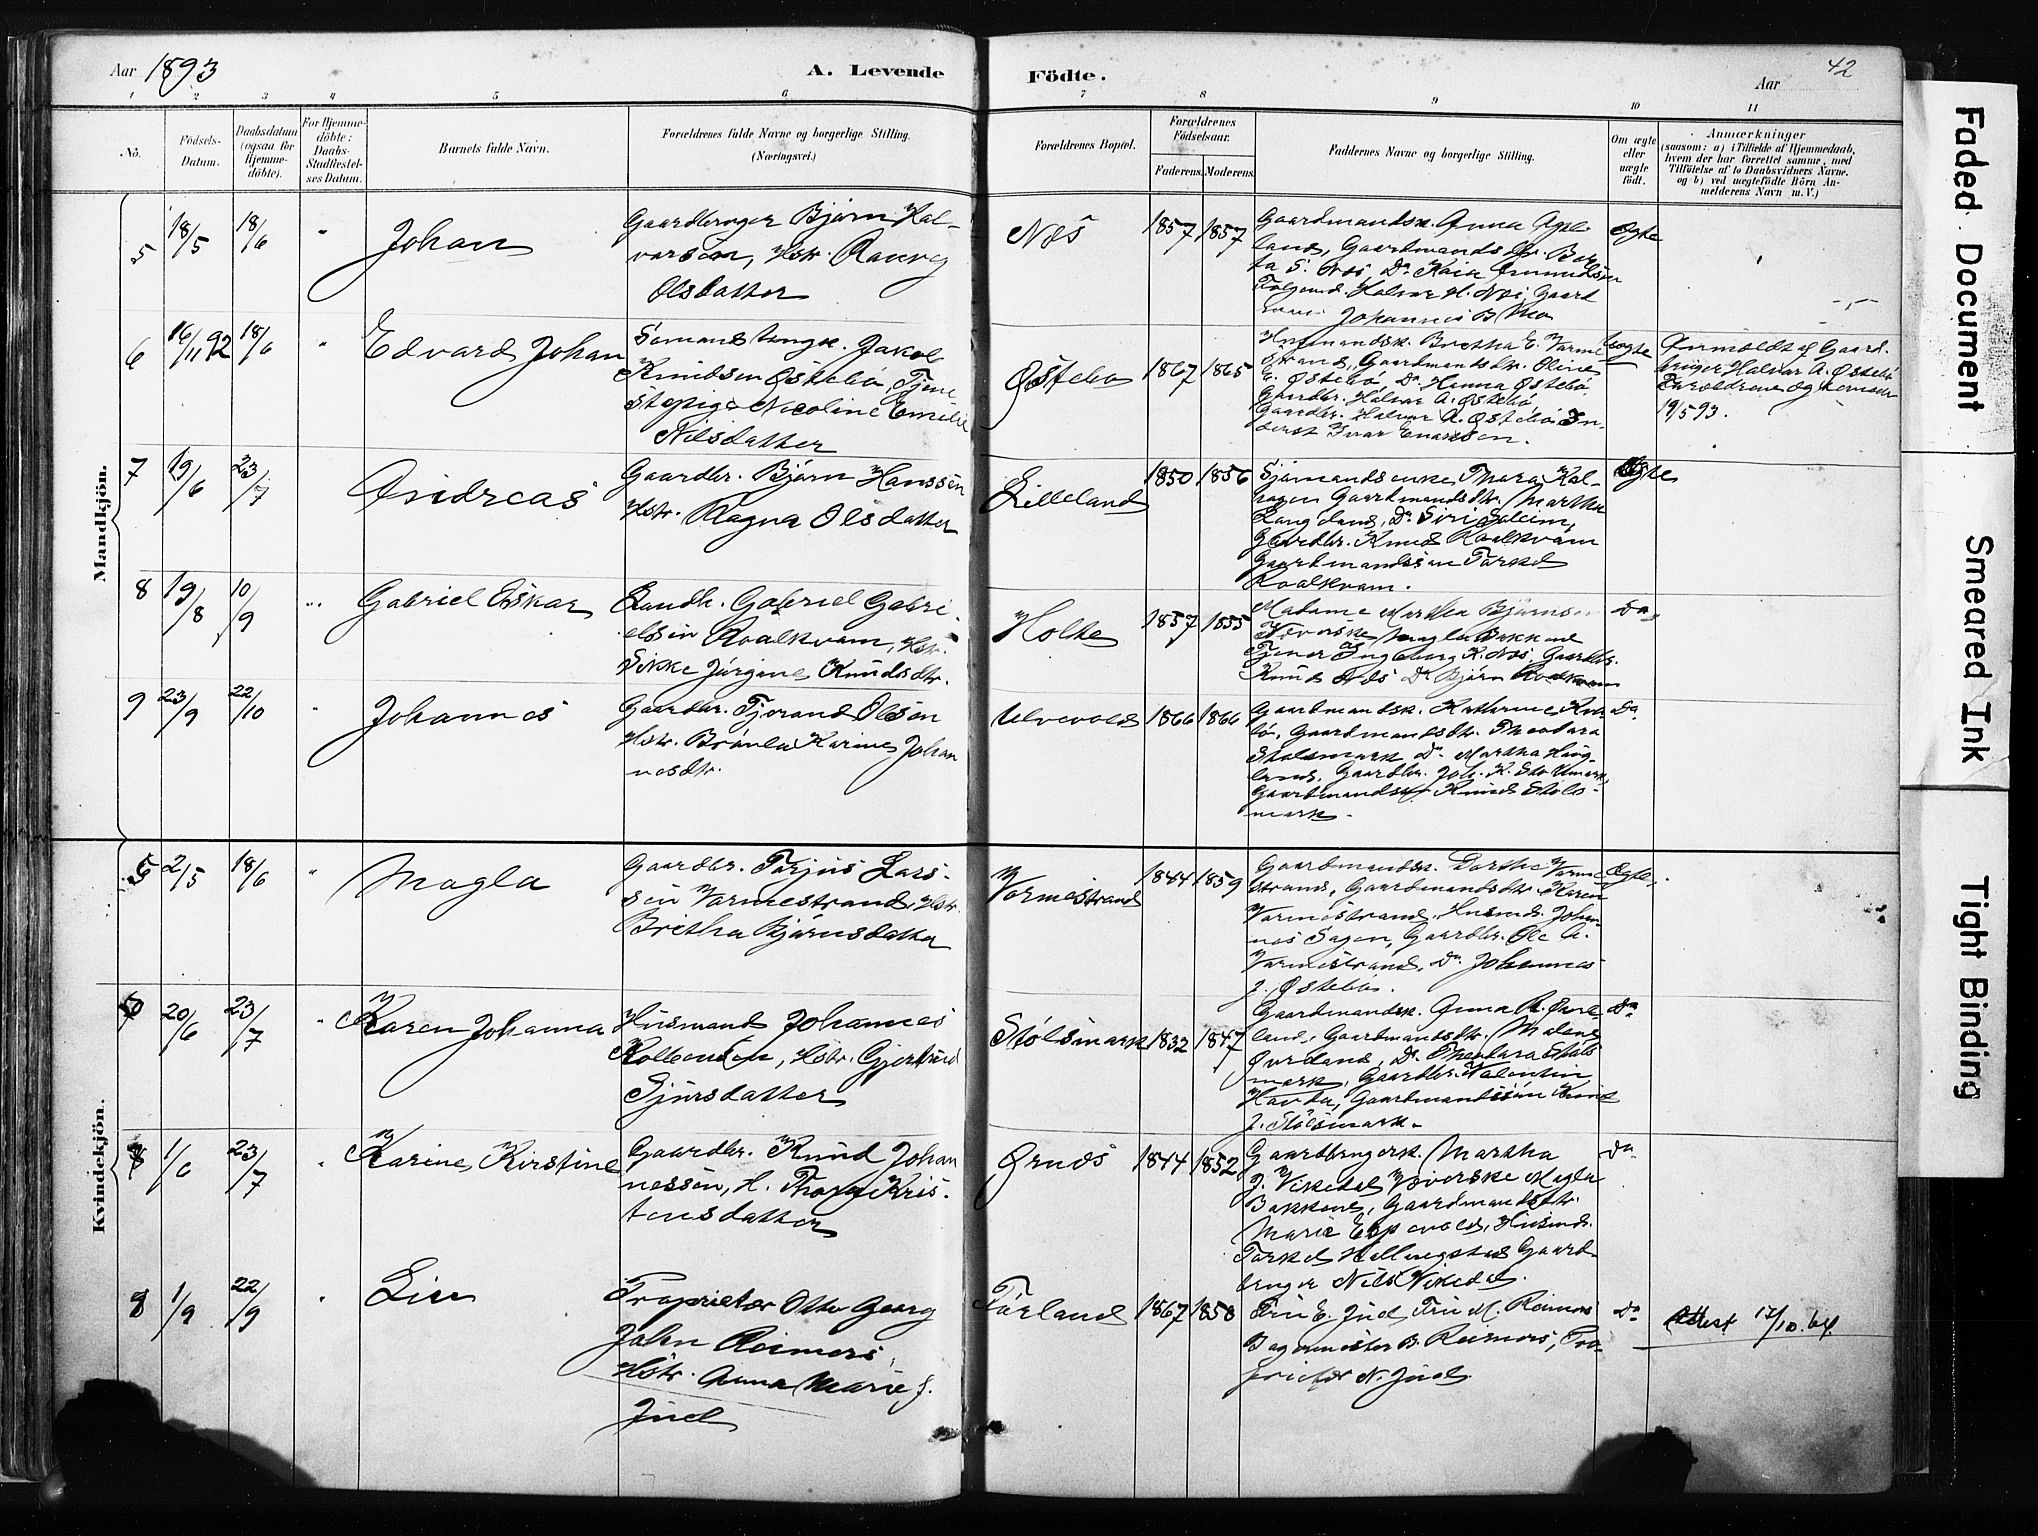 Aar 1893
A. Levende
Födte.
Aar
42
1 2 3 4 5 6 7 8 9 10 11
No.
Födsels-
Datum.
Daabsdatum
(ogsaa for
Hjemme-
döbte).
For Hjemme-
döbte:
Daabs-
Stadfæstel-
ses Datum.
Barnets fulde Navn.
Forældrenes fulde Navne og borgerlige Stilling.
(Næringsvei.)
Forældrenes Bopæl.
Forældrenes
Födselsaar.
Faderens.
Moderens.
Faddernes Navne og borgerlige Stilling.
Om ægte
eller
uægte
födt.
Anmærkninger
(saasom: a) i Tilfælde af Hjemmedaab,
hvem der har forrettet samme, med
Tilföielse af to Daabsvidners Navne,
og b) ved uægtefödte Börn An-
melderens Navn m. V.)
Mandkjön.
5 18/5 18/6 " Johan
Gaardbruger Bjørn Hal-
vorsen, Hstr. Ranveg
Olsdatter
Næs 1857 1857
Gaardmandsk. Anna Ople-
land, Gaardmandsdtr. Ber-
ta S. Næs, Do Kaia Omundsen
Halvor H. Næs, Gaard
Johannes B. Mo
Ægte
6 16/11 92 18/6 " Edvard Johan
Sømand Ungk. Jakob
Knudsen Østebø, Tjene-
stepige Nicoline Emilie
Nilsdatter
Østebø 1867 1865
Husmandsk. Bretha E. Varme-
strand, Gaardmandsdtr. Oline
E. Østebø, Do Hanna Østebø
Gaardbr. Halvor A. Østebø
Gaardbr. Halvor A. Østebø In-
derst Ivar Enoksen.
Uægte
Anmeldt af Gaard-
bruger Halvor A. Østebø
Forældrene
19/5 93.
7 19/6 23/7 Andreas
Gaardbr. Bjørn Hanssen
Hstr. Ragna Olsdatter
Lilleland 1850 1856
Sjømandsenke Thora Hal-
Gaardmandsdtr. Martha
Langeland, Do Siri
Gaardbr. Knud Roalkvam
Gaardmandssøn Torkel
Roalkvam.
Ægte
8 19/8 10/9 " Gabriel Oskar
Landh. Gabriel Gabri-
elsen Roalkvam, Hstr.
Sikke Jørgine Knudsdtr.
Holte 1857 1855
Madame Martha Bjørnsen
Væverske Magla Bakkene
Tjener Ingeborg K. Næs Gaardbr.
Knud Næs Do Bjørn Roalkvam
Do
9 23/9 22/10 " Johannes
Gaardbr. Tjerand Olsen
Hstr. Brønla Karine Johan-
nesdtr.
Ulvevold 1866 1866
Gaardmandsk. Katharine Kva-
lø, Gaardmandsdtr. Theodora
Stølsmark Do Martha Haug-
land, Gaardbr. Joh. K. Stølsmark,
Gaardmandss. Knud Støls-
mark.
Do
Kvindekjön.
5 2/5 18/6 " Magla
Gaardbr. Torjus Lars-
sen Varmestrand, Hstr.
Britha Bjørnsdatter
Varmestrand 1844 1859
Gaardmandsk. Dorthe Varme-
strand, Gaardmandsdtr. Karen
Varmestrand, Husmd. Johan-
nes Sagen, Gaardbr. Ole A.
Varmestrand, Do Johannes
J. Østebø.
Ægte
20/6 23/7 " Karen Johanna
Husmand Johannes
Kolbensen, Hstr. Gjertrud
Sjursdatter
Stølsmark 1832 1847
Gaardmandsk. Anna R. Øvre-
land, Gaardmandsdtr. Malene
Øvreland, Do Theodora Støls-
mark, Gaardbr. Valentin
Gaardmandssøn Knud
J. Stølsmark.
Do
1/6 23/7 " Karine Kirstine
Gaardbr. Knud Johan-
nessen, H. Thora Kris-
tensdatter
Ørnes 1844 1852
Gaardbrugersk. Martha
J. Vikedal Væverske Magla
Bakkene, Gaardmandsdtr.
Marie Espevold, Husmd.
Torkel Hellingstad Gaard-
bruger Nils Vikedal.
Do
8 1/9 22/9 " Lise
Proprietær Otto Georg
John Reimers,
Hstr. Anna Marie J.
Juel
Førland 1867 1858
Fru E. Juel, Fru M. Reimers
Bagermester B. Reimers, Pro-
prietær N. Juel
Do
Attest 12/10.64.
Faded Document
Smeared Ink
Tight Binding